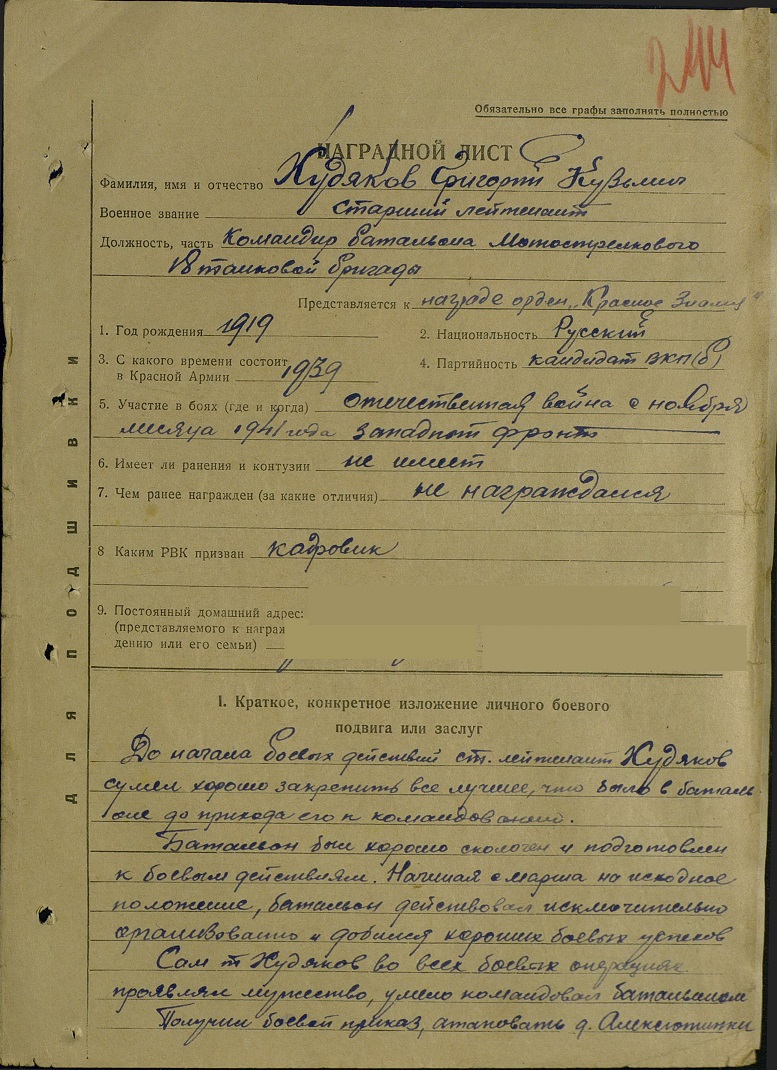 244
Обязательно все графы заполнять полностью
НАГРАДНОЙ ЛИСТ
Фамилия, имя и отчество Худяков Григорий Кузьмич
Военное звание старший лейтенант
Должность, часть Командир батальона Мотострелкового
18 танковой бригады
Представляется к награде орден „Красное Знамя"
1. Год рождения 1919
2. Национальность Русский
3. С какого времени состоит
в Красной Армии 1939
4. Партийность кандидат ВКП(б)
5. Участие в боях (где и когда) отечественная война с ноября
месяца 1941 года западный фронт
6. Имеет ли ранения и контузии не имеет
7. Чем ранее награжден (за какие отличия) не награждался
8 Каким РВК призван кадровик
9. Постоянный домашний адрес:
(представляемого к награж
дению или его семьи)
I. Краткое, конкретное изложение личного боевого
подвига или заслуг
До начала боевых действий ст. лейтенант Худяков
сумел хорошо закрепить все лучшее, что было в баталь-
оне до прихода его к командованию.
Батальон был хорошо сколочен и подготовлен
к боевым действиям. Начиная с марша на исходное
положение, батальон действовал исключительно
организованно и добился хороших боевых успехов
Сам т Худяков во всех боевых операциях
проявлял мужество, умело командовал батальоном
Получил боевой приказ, атаковать д.
для подшивки